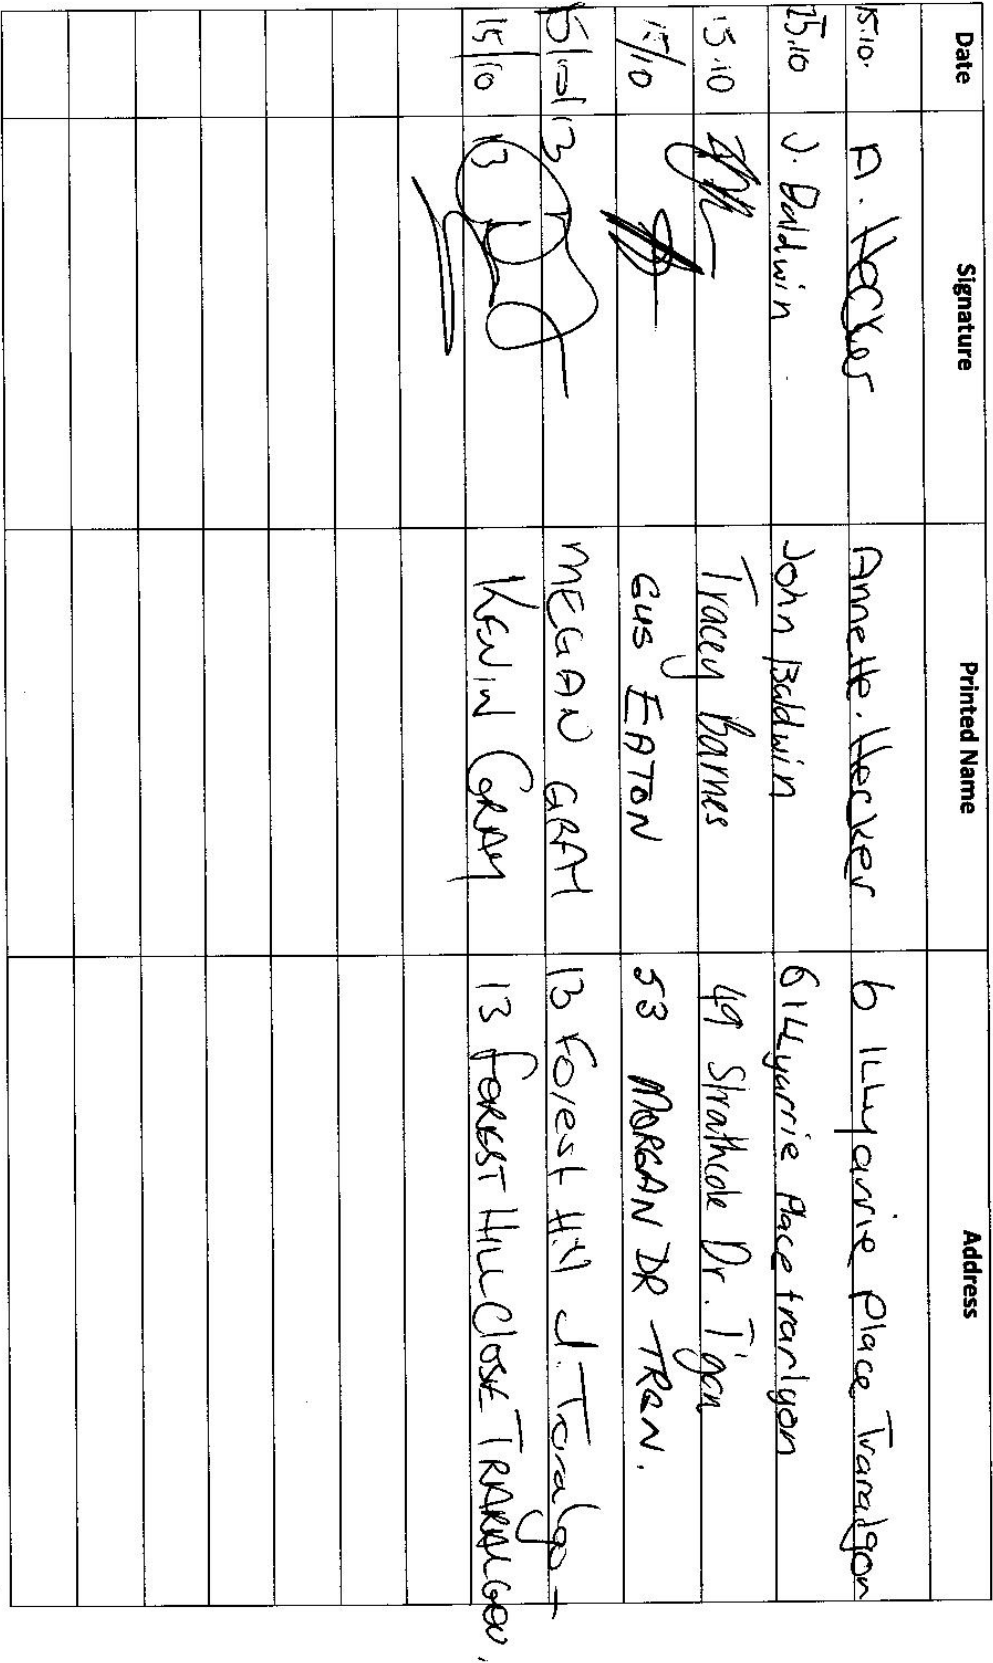 Date Signature Printed Name Address
15.10. A. Hecker Annette. Hecker 6 ILLyarrie Place Traralgon
15.10 J. Baldwin John Baldwin 6 ILLyarrie Place trarlgon
15.10 Tracey Barnes 49 Strathcole Dr. T'gon
15/10 GUS EATON 53 MORGAN DR TRGN.
15/10/13 MEGAN GRAY 13 Forest Hill Cl. Traralgo-
15/10/13 KEVIN GRAY 13 FOREST HILL CLOSE TRARALGON,